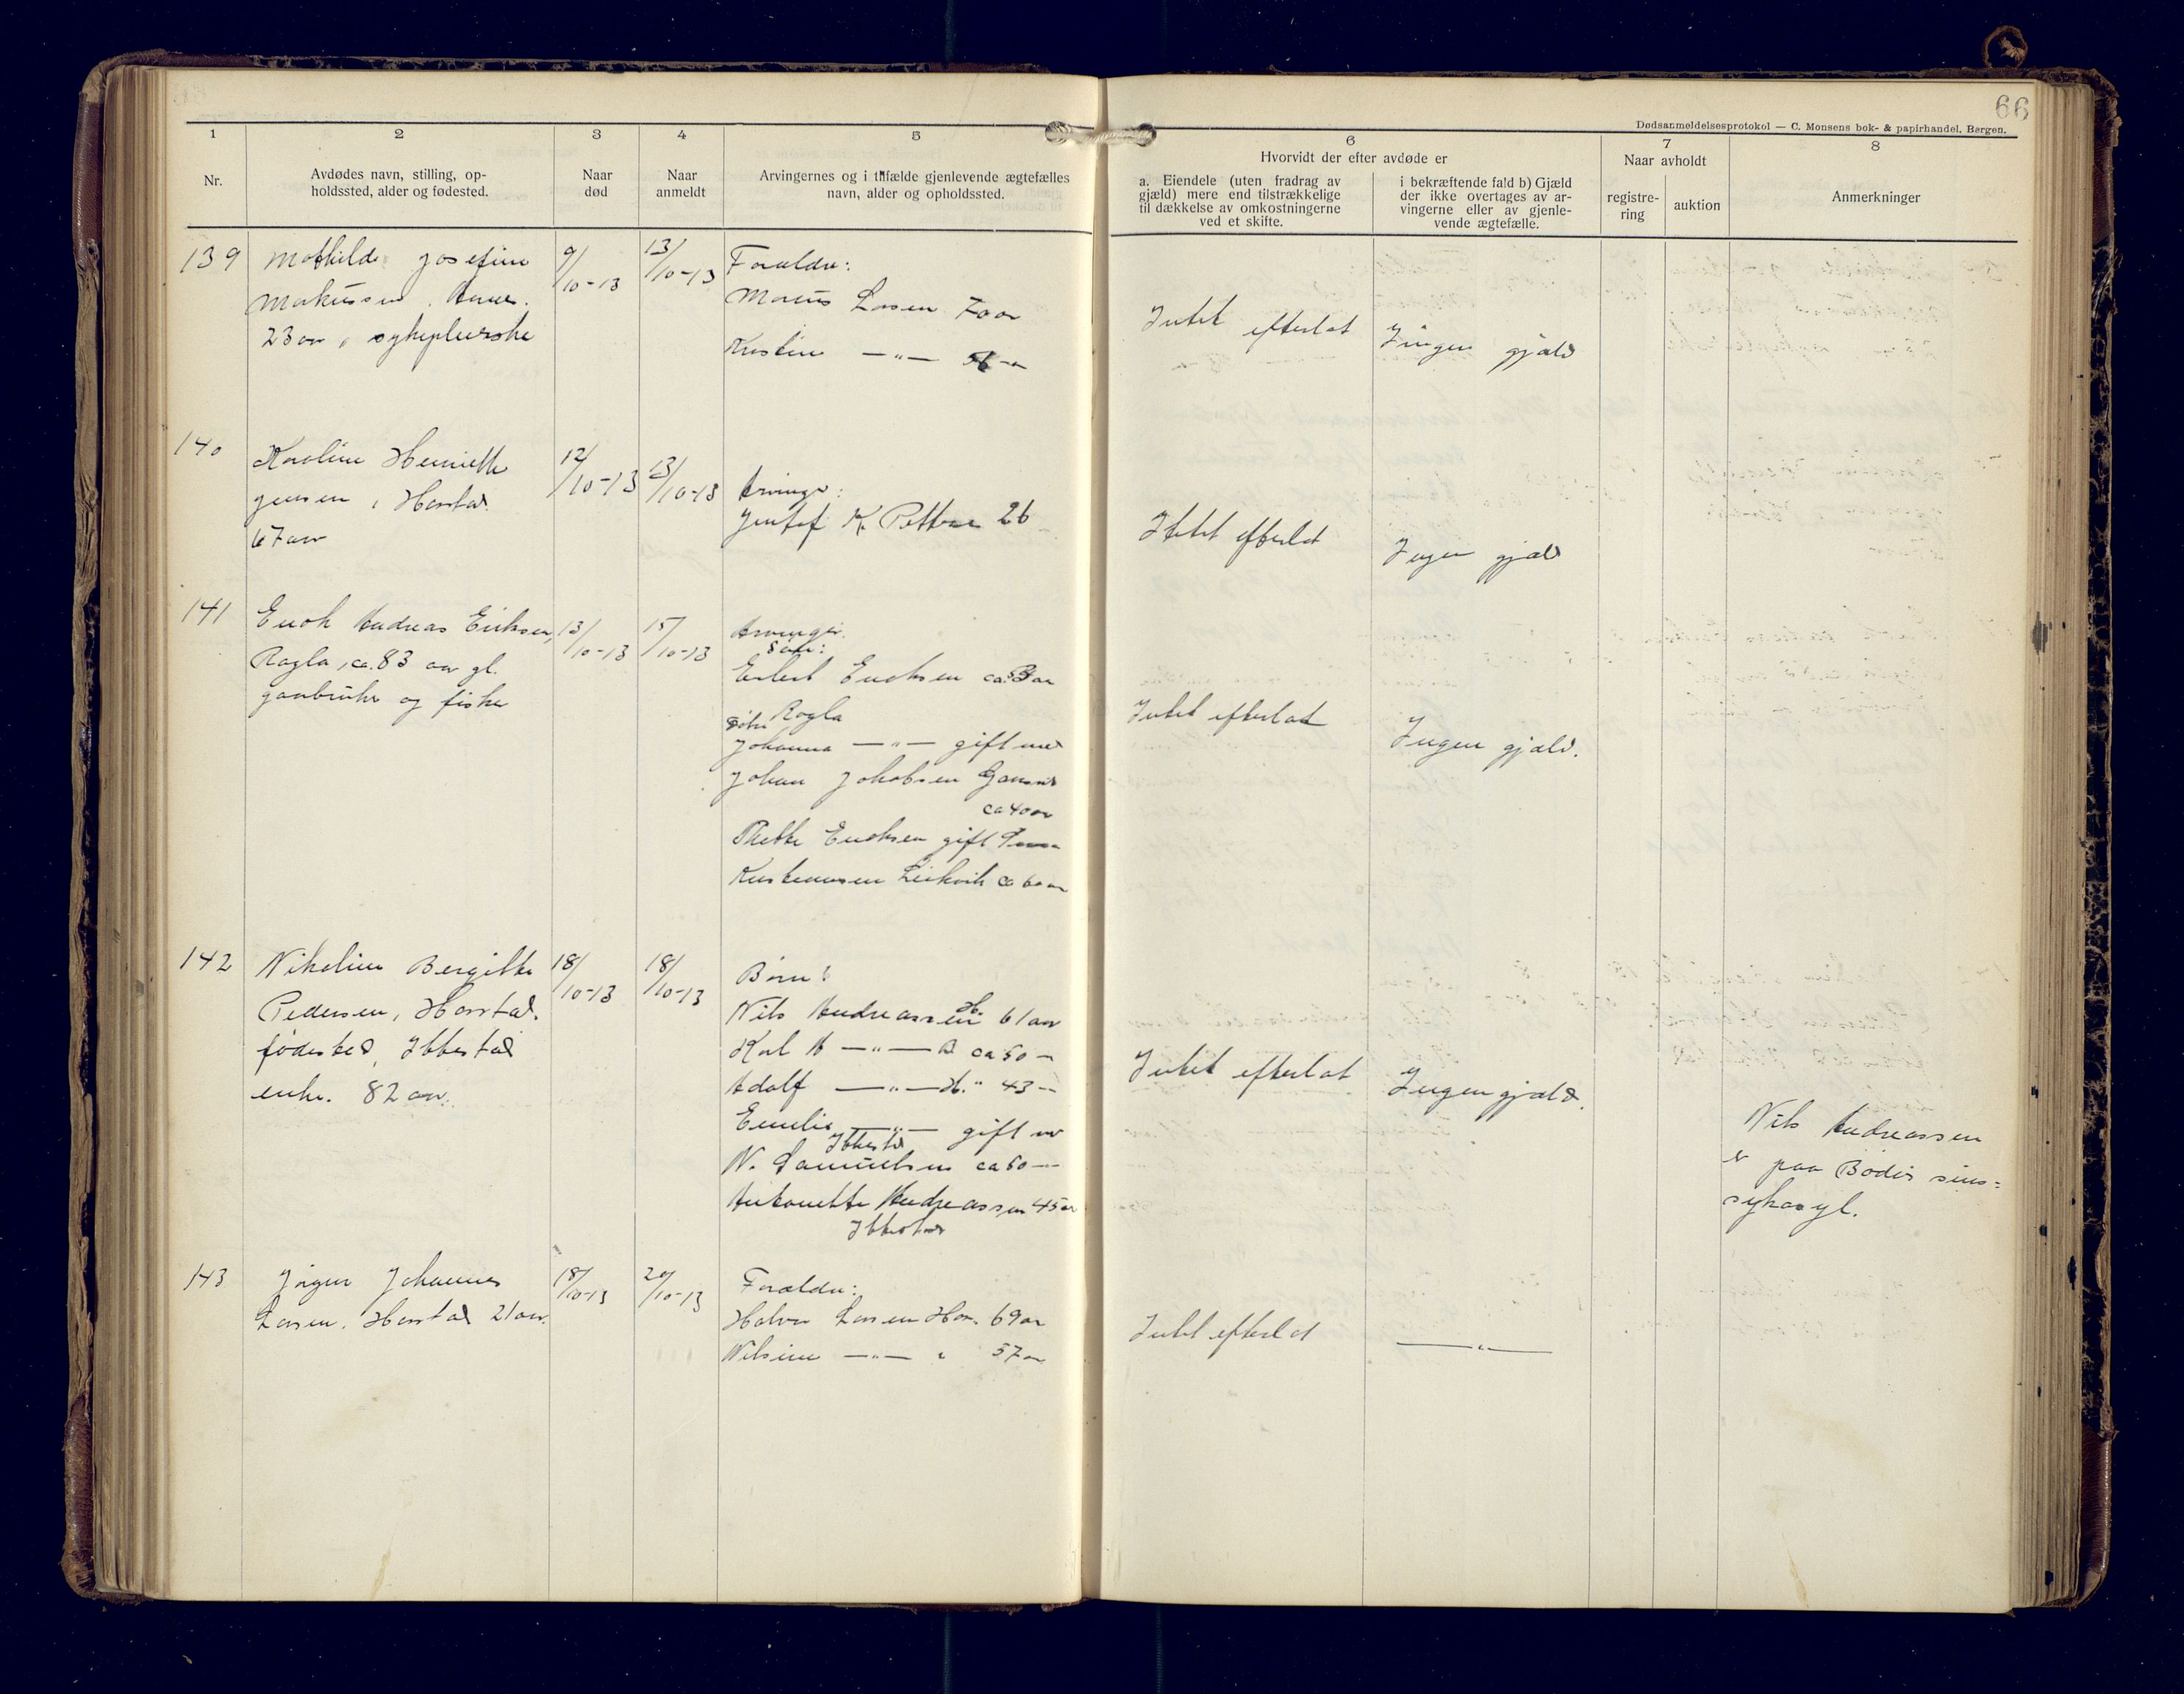 66
Dødsanmeldelsesprotokol — C. Monsens bok- & papirhandel, Bergen.
1 2 3 4 5
Nr.
Avdødes navn, stilling, op-
holdssted, alder og fødested.
Naar
død
Naar
anmeldt
Arvingernes og i tilfælde gjenlevende ægtefælles
navn, alder og opholdssted.
6 7 8
Hvorvidt der efter avdøde er
a. Eiendele (uten fradrag av
gjæld) mere end tilstrækkelige
til dækkelse av omkostningerne
ved et skifte.
i bekræftende fald b) Gjæld
der ikke overtages av ar-
vingerne eller av gjenle-
vende ægtefælle.
Naar avholdt
registre-
ring
auktion
Anmerkninger
139
Mathilde Josefine
Markussen
23 aar, sykepleierske
9/10-13
13/10-13
Forældre:
Marius Larsen 70 ar
Kristine —"—
Intet efterlat
Ingen gjæld
140
Karoline Henriette
Jensen, Harstad.
67 aar
12/10-13
13/10-13
Arvinge:
K. Petters 26
Intet efterlat
Ingen gjæld
141
Enok Andreas Eriksen,
Rogla, ca. 83 aar gl.
gaardbruker og fisker
13/10-13
15/10-13
Arvinger.
Søn:
Enoksen ca.
Rogla
Johanna —"— gift med
Johan Jakobsen
ca 40 aar
Enoksen gift
Kristiansen Leikvik ca 60 aar
Intet efterlat
Ingen gjæld.
142
Nikoline Bergitte
Pedersen, Harstad.
fødested, Ibbestad
enke. 82 aar.
18/10-13
18/10-13
Børn:
Nils Andreassen H. 61 aar
Karl A —"— ca 50 —
Adolf —"— H. " 43 —
Emelie —"— gift m
Ibbestad
N. Samuelsen ca 50 —
Antonette Andreassen 45 ar
Ibbestad
Intet efterlat
Ingen gjæld.
Nils Andreassen
er paa Bodø sins=
sykeasyl.
143
Jørgen Johannes
Larsen. Harstad 21 aar.
18/10-13
20/10-13
Forældre:
Halvor Larsen Har. 69 ar
Nilsine —"— " 57 ar
Intet efterlat
—"—